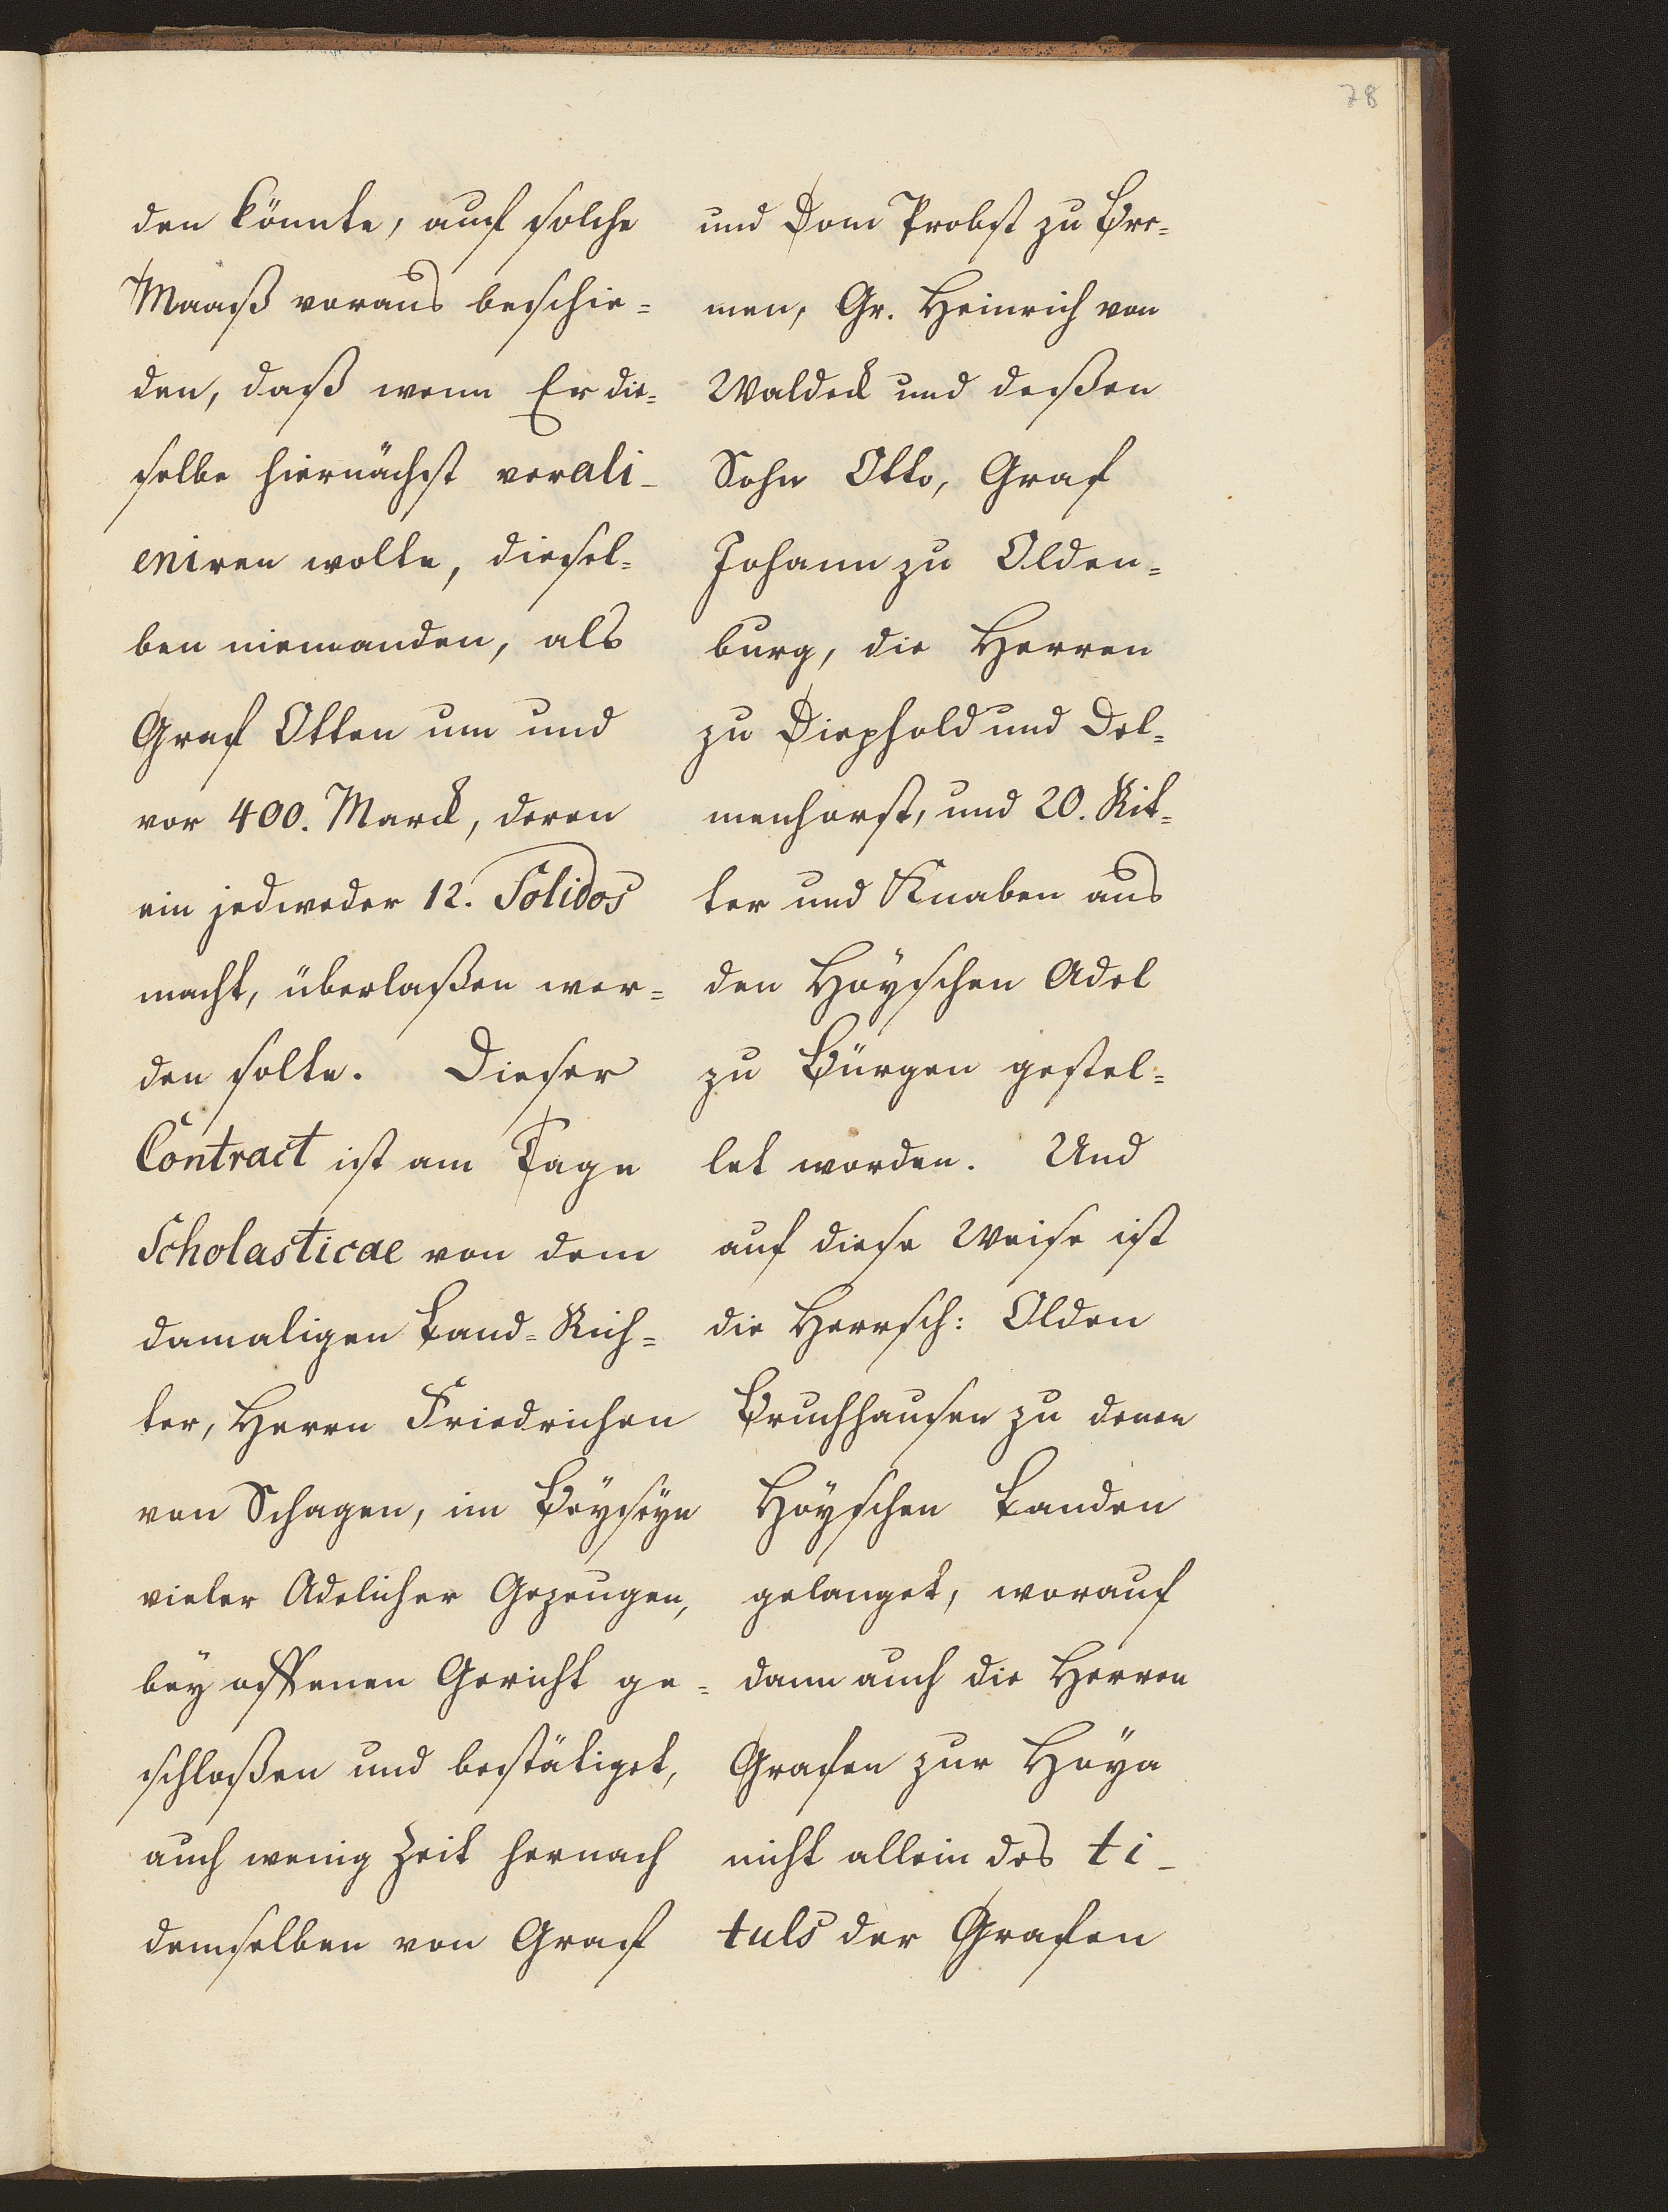 78
den könnte, auf solche
Maaß voraus beschie=
den, daß wenn Er die=
selbe hiernächst verali-
eniren wolte, diesel=
ben niemanden, als
Graf Otten um und
vor 400. Marck, deren
ein jedweder 12. Solidos
macht, überlaßen wer=
den solte. Dieser
Contract ist am Tage
Scholasticae von dem
damaligen Land=Rich=
ter, Herrn Friedrichen
von Schagen, im Beyseyn
vieler Adelicher Gezeugen,
bey offenen Gericht ge=
schloßen und bestätiget,
auch wenig Zeit hernach
demselben von Graf
und Dom Probst zu Bre=
men, Gr. Heinrich von
Waldeck und deßen
Sohn Otto, Graf
Johann zu Olden=
burg, die Herren
zu Diephold und Del=
menhorst, und 20. Rit=
ter und Knaben aus
den Hoyschen Adel
zu Bürgen gestel=
let worden. Und
auf diese Weise ist
die Herrsch: Olden
Bruchhausen zu denen
Hoyschen Landen
gelanget, worauf
dann auch die Herren
Grafen zur Hoya
nicht allein des ti-
tuls der Grafen